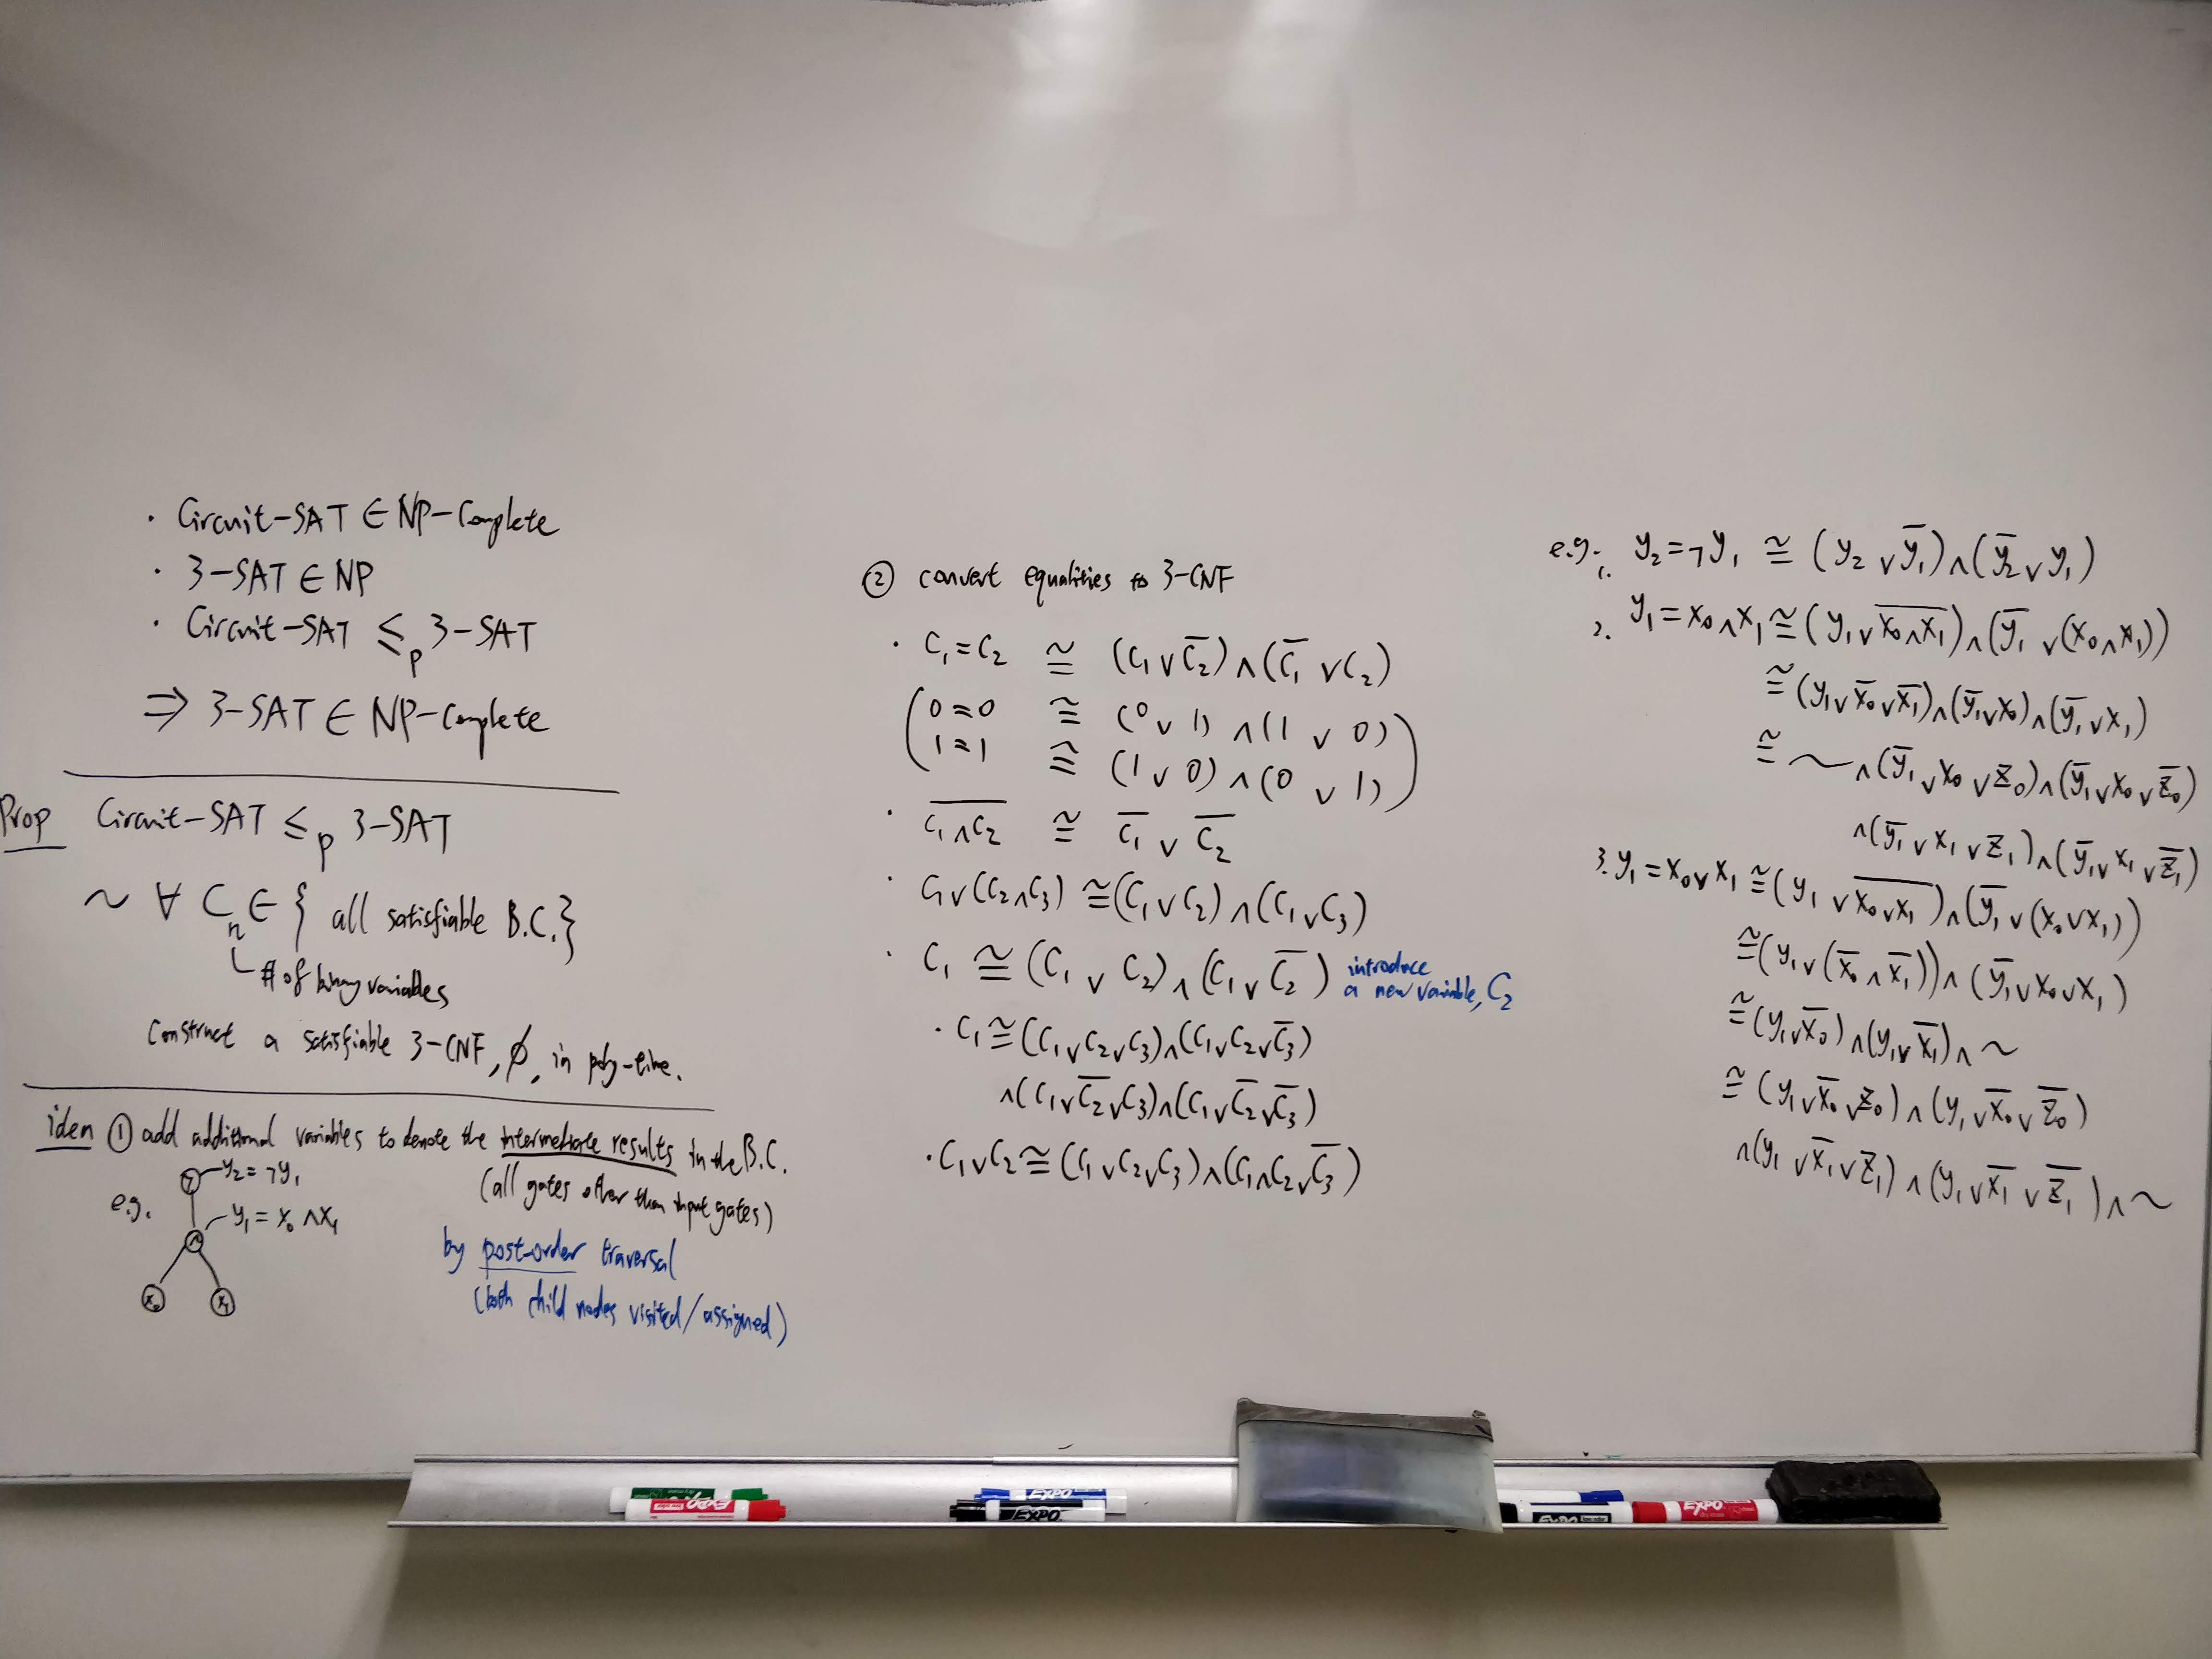 · Circuit-SAT ∈ NP-Complete
· 3-SAT ∈ NP
· Circuit-SAT ≤p 3-SAT
⇒ 3-SAT ∈ NP-Complete
Prop Circuit-SAT ≤p 3-SAT
~ ∀ Cn ∈ { all satisfiable B.C.}
# of binary variables
Construct a satisfiable 3-CNF, ∅, in poly-time.
idea ① add additional variables to denote the intermediate results in the B.C.
(all gates other than input gates)
e.g.
¬ y₂ = ¬y₁
∧ y₁ = x₀ ∧ x₁
x₀ x₁
by post-order traversal
(both child nodes visited/assigned)
② convert equalities to 3-CNF
· C₁ = C₂ ≅ (C₁ ∨ C̅₂) ∧ (C̅₁ ∨ C₂)
(0 = 0 ≅ (0 ∨ 1) ∧ (1 ∨ 0)
1 = 1 ≅ (1 ∨ 0) ∧ (0 ∨ 1))
· \overline{C₁ ∧ C₂} ≅ C̅₁ ∨ C̅₂
· C₁ ∨ (C₂ ∧ C₃) ≅ (C₁ ∨ C₂) ∧ (C₁ ∨ C₃)
· C₁ ≅ (C₁ ∨ C₂) ∧ (C₁ ∨ C̅₂) introduce
a new variable, C₂
· C₁ ≅ (C₁ ∨ C₂ ∨ C₃) ∧ (C₁ ∨ C₂ ∨ C̅₃)
∧ (C₁ ∨ C̅₂ ∨ C₃) ∧ (C₁ ∨ C̅₂ ∨ C̅₃)
· C₁ ∨ C₂ ≅ (C₁ ∨ C₂ ∨ C₃) ∧ (C₁ ∧ C₂ ∨ C̅₃)
e.g. 1. y₂ = ¬y₁ ≅ (y₂ ∨ y̅₁) ∧ (y̅₂ ∨ y₁)
2. y₁ = x₀ ∧ x₁ ≅ (y₁ ∨ \overline{x₀ ∧ x₁}) ∧ (y̅₁ ∨ (x₀ ∧ x₁))
≅ (y₁ ∨ x̅₀ ∨ x̅₁) ∧ (y̅₁ ∨ x₀) ∧ (y̅₁ ∨ x₁)
≅ ~ ∧ (y̅₁ ∨ x₀ ∨ z₀) ∧ (y̅₁ ∨ x₀ ∨ z̅₀)
∧ (y̅₁ ∨ x₁ ∨ z₁) ∧ (y̅₁ ∨ x₁ ∨ z̅₁)
3. y₁ = x₀ ∨ x₁ ≅ (y₁ ∨ \overline{x₀ ∨ x₁}) ∧ (y̅₁ ∨ (x₀ ∨ x₁))
≅ (y₁ ∨ (x̅₀ ∧ x̅₁)) ∧ (y̅₁ ∨ x₀ ∨ x₁)
≅ (y₁ ∨ x̅₀) ∧ (y₁ ∨ x̅₁) ∧ ~
≅ (y₁ ∨ x̅₀ ∨ z₀) ∧ (y₁ ∨ x̅₀ ∨ z̅₀)
∧ (y₁ ∨ x̅₁ ∨ z₁) ∧ (y₁ ∨ x̅₁ ∨ z̅₁) ∧ ~
EXPO
EXPO
EXPO
EXPO
EXPO